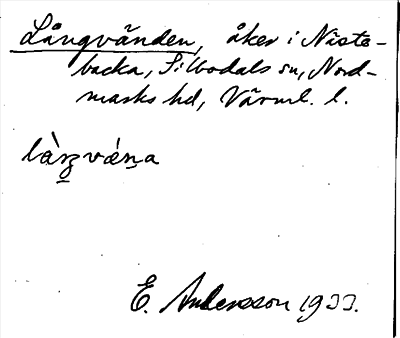 Långvänden, åker i Näste-
backa, Silbodals sn, Nord-
marks hd, Värml. l.
E. Andersson 1933.